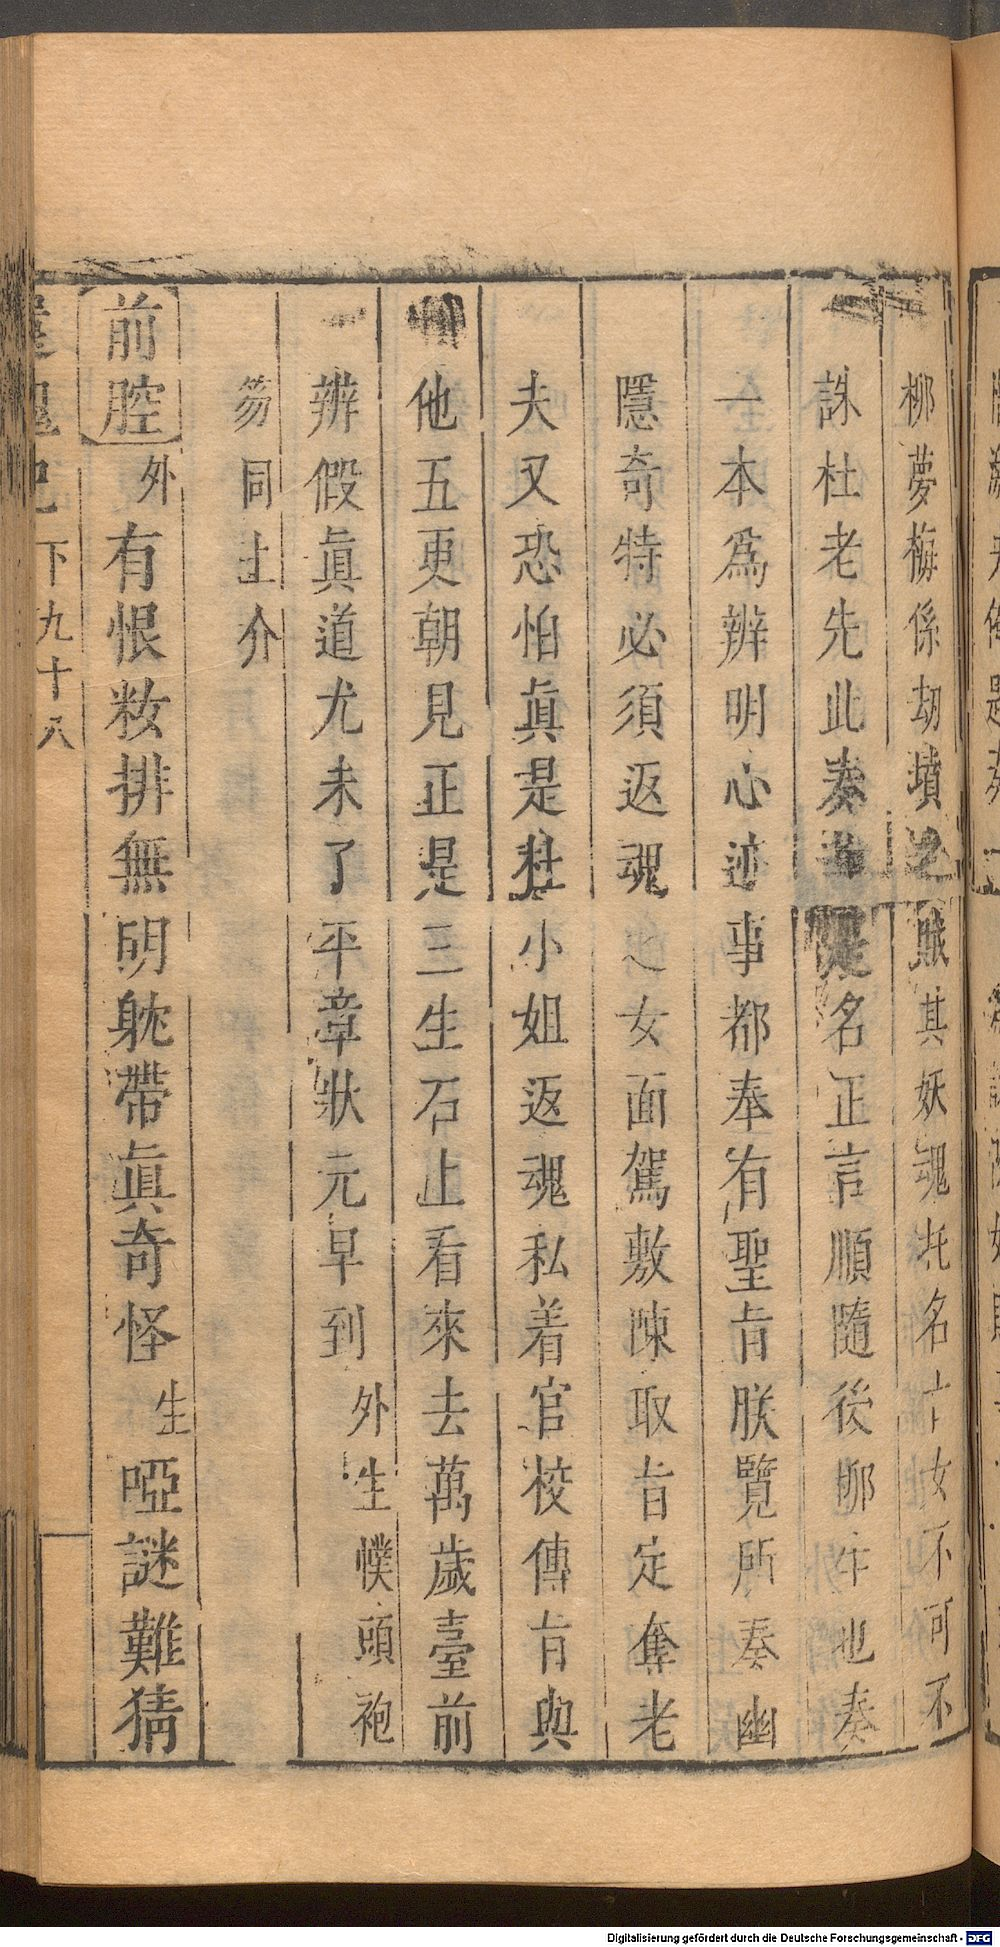 柳夢梅係刼墳之賊其妖魂托名亡女不可不
誅杜老先此奏名正言順隨後柳生也奏
一本為辨明心迹事都奉有聖旨朕覽所奏幽
隱奇特必須返魂之女面駕敷陳取旨定奪老
夫又恐怕眞是杜小姐返魂私着官校傳旨與
他五更朝見正是三生石上看來去萬歲臺前
辨假眞道尤未了平章狀元早到外生幞頭袍
笏同上介
前腔外有恨妝排無明躭帶眞奇怪生啞謎難猜
還魂記 下 九十八
Digitalisierung gefördert durch die Deutsche Forschungsgemeinschaft - DFG